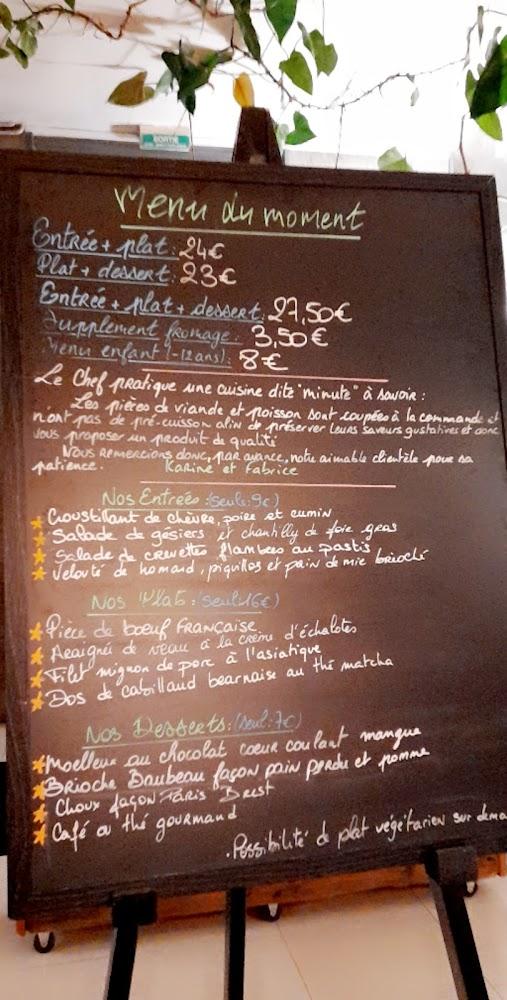 SORTIE
Menu du moment
Entrée + plat : 24€
Plat + dessert : 23€
Entrée + plat + dessert : 27,50€
Supplement fromage : 3,50€
Menu enfant (-12 ans) : 8€
Le Chef pratique une cuisine dite "minute" à savoir :
Les pièces de viande et poisson sont coupées à la commande et
n'ont pas de pré-cuisson afin de préserver leurs saveurs gustatives et donc
vous proposer un produit de qualité
Nous remercions donc, par avance, notre aimable clientèle pour sa
patience. Karine et Fabrice
Nos Entrées : (seul : 9€)
Croustillant de chèvre, poire et cumin
Salade de gésiers et chantilly de foie gras
Salade de crevettes flambées au pastis
Velouté de homard, piquillos et pain de mie brioché
Nos Plats : (seul 16€)
Pièce de boeuf Française
Araignée de veau à la crème d'échalotes
Filet mignon de porc à l'asiatique
Dos de cabillaud bearnaise au thé matcha
Nos Desserts : (seul : 7€)
Moelleux au chocolat coeur coulant mangue
Brioche Baubeau façon pain perdu et pomme
Choux façon Paris Brest
Café ou thé gourmand
. Possibilité de plat végétarien sur dema